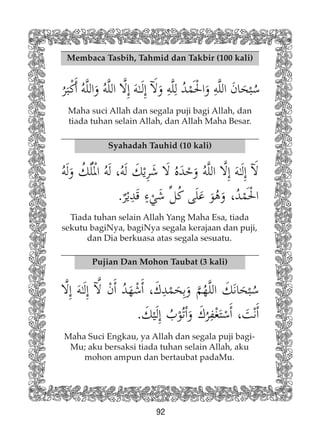 Membaca Tasbih, Tahmid dan Takbir (100 kali)
سُبْحَانَ اللهِ وَالْحَمْدُ لِلَّهِ وَلَآ إِلَـٰهَ إِلَّا اللهُ وَاللهُ أَكْبَرُ
Maha suci Allah dan segala puji bagi Allah, dan
tiada tuhan selain Allah, dan Allah Maha Besar.
Syahadah Tauhid (10 kali)
لَآ إِلَـٰهَ إِلَّا اللهُ وَحْدَهُ لَا شَرِيْكَ لَهُ، لَهُ الْمُلْكُ وَلَهُ
الْحَمْدُ، وَهُوَ عَلَى كُلِّ شَيْءٍ قَدِيْرٌ.
Tiada tuhan selain Allah Yang Maha Esa, tiada
sekutu bagiNya, bagiNya segala kerajaan dan puji,
dan Dia berkuasa atas segala sesuatu.
Pujian Dan Mohon Taubat (3 kali)
سُبْحَانَكَ اللَّهُمَّ وَبِحَمْدِكَ، أَشْهَدُ أَنْ لَّآ إِلَـٰهَ إِلَّا
أَنْتَ، أَسْتَغْفِرُكَ وَأَتُوْبُ إِلَيْكَ.
Maha Suci Engkau, ya Allah dan segala puji bagi-
Mu; aku bersaksi tiada tuhan selain Allah, aku
mohon ampun dan bertaubat padaMu.
92